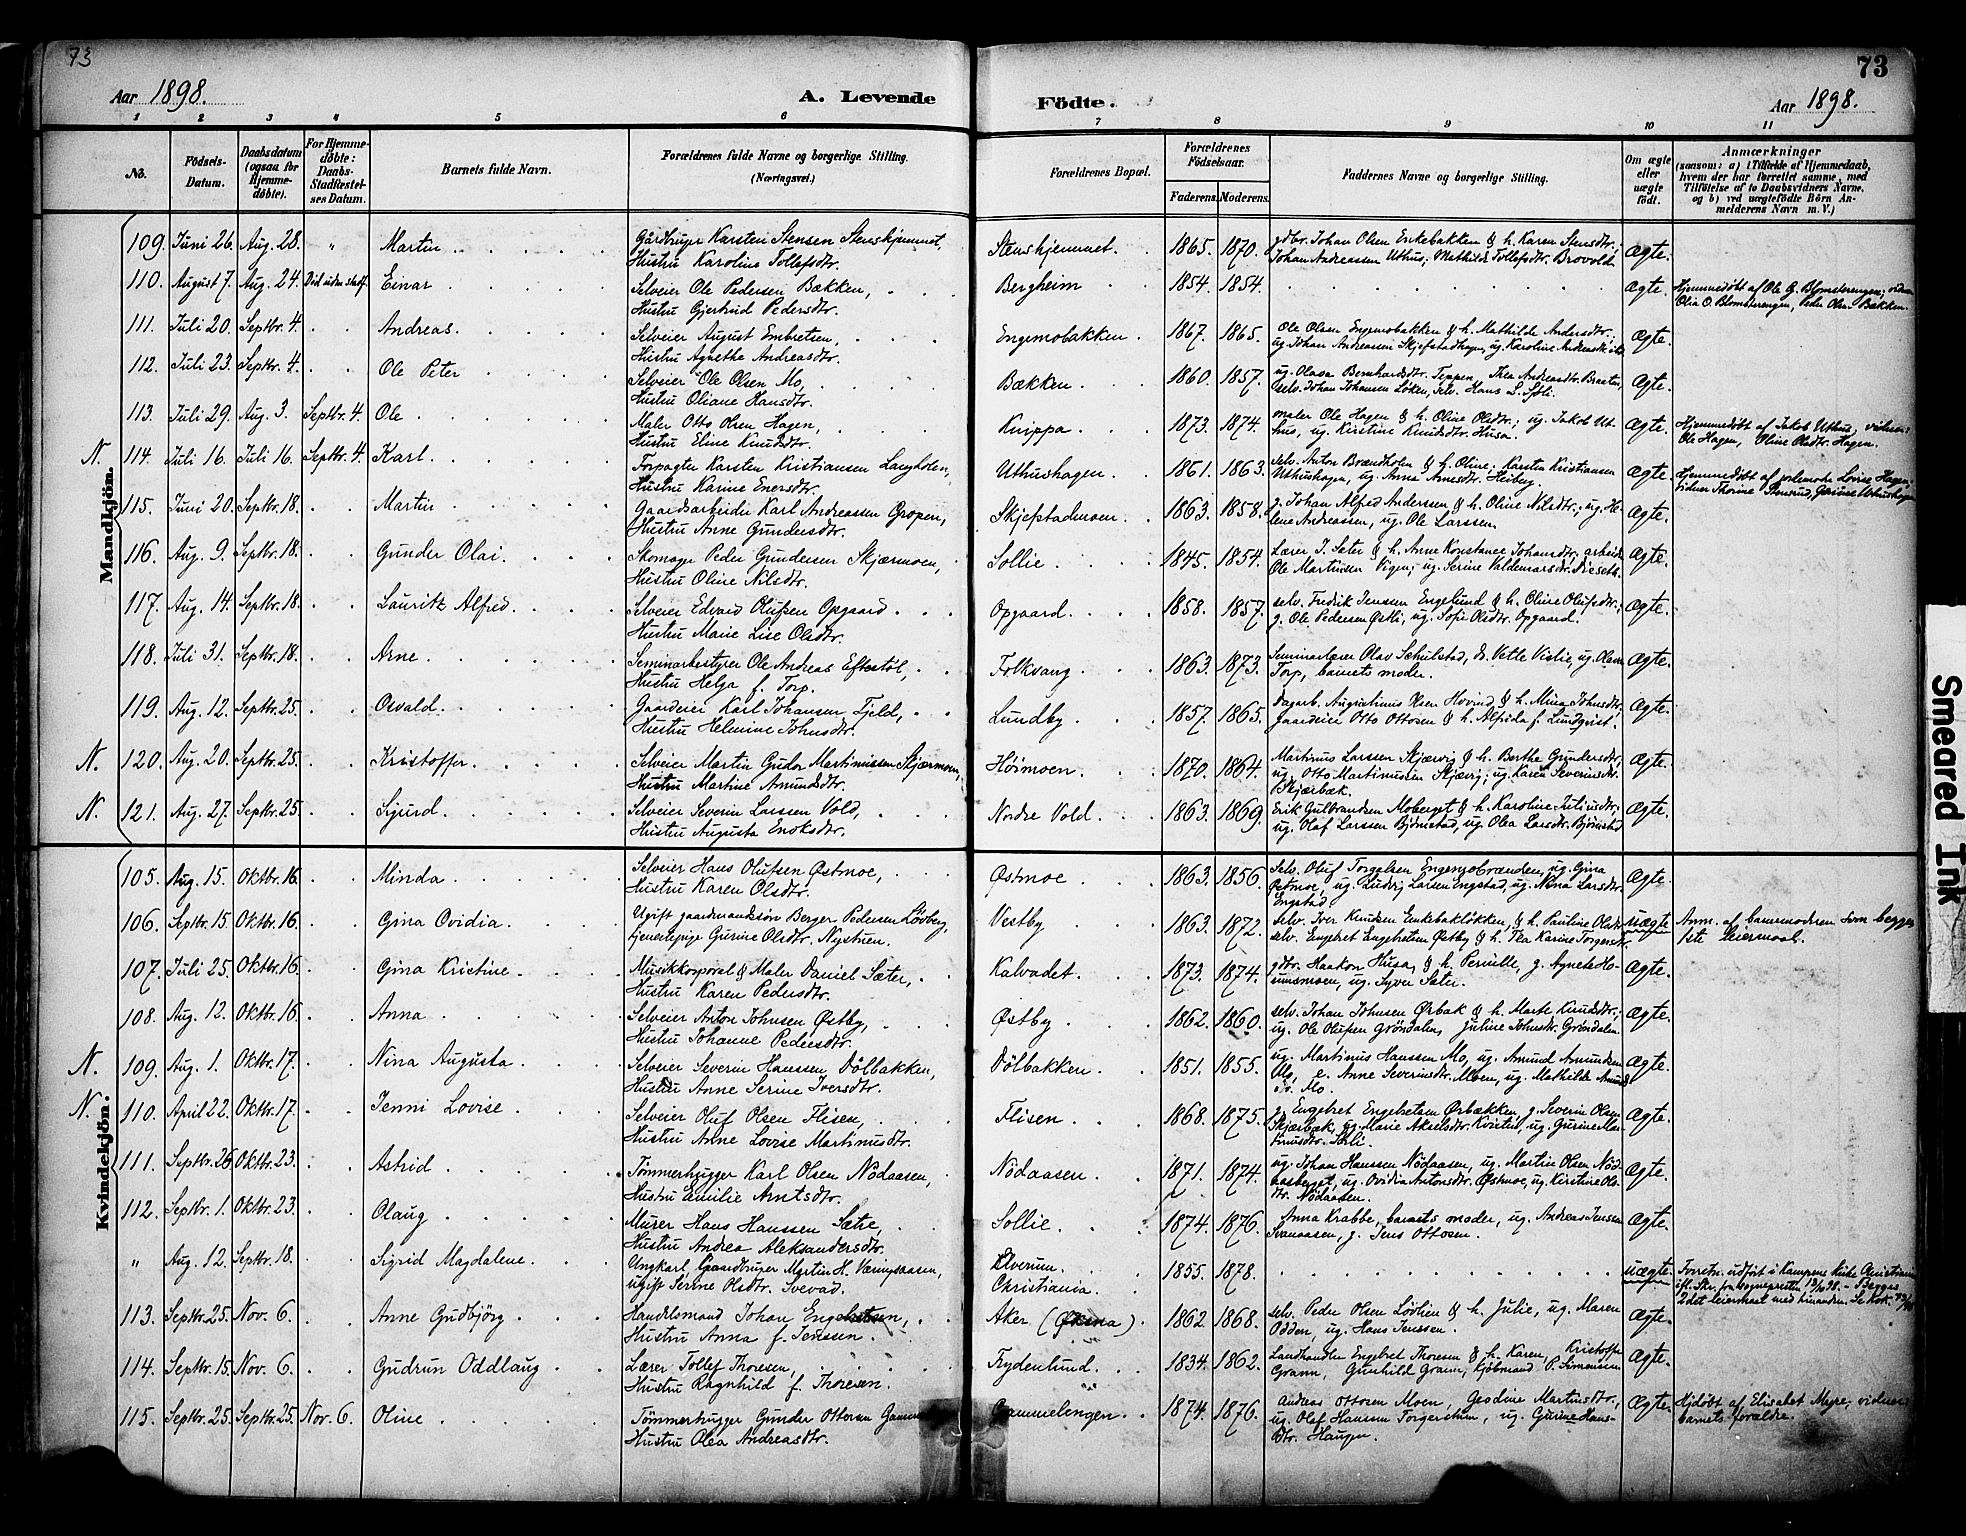 73
Aar 1898.
A. Levende
Födte.
73
Aar 1898.
1 2 3 4 5 6 7 8 9 10 11
No.
Födsels-
Datum.
Daabsdatum
(ogsaa for
Hjemme-
döbte).
For Hjemme-
döbte:
Daabs-
Stadfæstel-
ses Datum.
Barnets fulde Navn.
Forældrenes fulde Navne og borgerlige Stilling.
(Næringsvei.)
Forældrenes Bopæl.
Forældrenes
Födselsaar.
Faderens. Moderens.
Faddernes Navne og borgerlige Stilling.
Om ægte
eller
uægte
födt.
Anmærkninger
(saasom: a) i Tilfælde af Hjemmedaab,
hvem der har forrettet samme, med
Tilföielse af to Daabsvidners Navne,
og b) ved uægtefödte Börn An-
melderens Navn m. V.)
Mandkjön.
109. Juni 26. Aug. 28. " Martin Gårdbruger Karsten Stensen Stenskjernnet, Stenskjemmet. 1865. 1870. gdbr. Johan Olsen Enkebakken & h. Karen Stensdtr., Ægte.
Hustru Karoline Tollefsdtr. Johan Andreassen Uthus; Mathilde Tollefsdtr. Brovold.
110. August 7. Aug. 24. Död uden stadf. Einar Selveier Ole Pedersen Bækken, Bergheim 1854. 1854. Ægte. Hjemmedöbt af Ole G. Blomsterengen; vidner
Hustru Gjertrud Pedersdtr. Olia O. Blomsterengen, Peder Olsen Bækken.
111. Juli 20. Septbr. 4. Andreas. Selveier August Embretsen, Engemobakken 1867. 1865. Ole Olsen Engemobakken & h. Mathilde Andersdtr.; Ægte.
Hustru Agnethe Andreasdtr. ug. Johan Andreassen Skjefstadhagen, ug. Karoline
112. Juli 23. Septbr. 4. Ole Peter Selveier Ole Olsen Mo, Bækken 1860. 1857. ug. Olava Bernhardsdtr. Teppen, Thea Andreasdtr. Braaten, Ægte.
Hustru Oliane Hansdtr. selv. Johan Johansen Løken, selv. Hans L. Sjøli.
113. Juli 29. Aug. 3. Septbr. 4. Ole Maler Otto Olsen Hagen, Knippa 1873. 1874. maler Ole Hagen & h. Oline Olsdtr.; ug. Jakob Ut- Ægte. Hjemmedöbt af Jakob Uthus; vidner:
Hustru Eline Knudsdtr. hus, ug. Kristine Knudsdtr. Husa. Ole Hagen, Oline Olsdtr. Hagen.
N. 114. Juli 16. Juli 16. Septbr. 4. Karl Forpagter Karsten Kristiansen Langholen, Uthushagen 1861. 1863. selv. Anton Brændholen & h. Oline; Karsten Kristiansen Ægte. Hjemmedöbt af jordemoder Lovise Hagen;
Hustru Karine Enersdtr. Uthushagen, ug. Anna Arnesdtr. Heiberg. vidner Thorine Stensrud, Gurine Uthushagen
115. Juni 20. Septbr. 18. Martin Gaardsarbeider Karl Andreassen Gropen, Skjefstadmoen 1863. 1858. g. Johan Alfred Anderssen & h. Oline Nilsdtr.; ug. He- Ægte.
Hustru Anne Gundersdtr. lene Andreassen, ug. Ole Larssen.
116. Aug. 9. Septbr. 18. Gunder Olai Skomager Peder Gundersen Skjærmoen, Sollie 1845. 1854. Lærer J. Sæter & h. Anne Konstance Johansdtr, arbeider Ægte.
Hustru Oline Nilsdtr. Ole Martinsen Vigen; ug. Serine Valdemarsdtr.
117. Aug. 14. Septbr. 18. Lauritz Alfred Selveier Edvard Olufsen Opgaard Opgaard 1858. 1857. selv. Fredrik Jenssen Engelund & h. Oline Olufsdtr.; Ægte.
Hustru Marie Lise Olsdtr. g. Ole Pedersen Østli, ug. Sofie Olsdtr. Opgaard.
118. Juli 31. Septbr. 18. Arne Seminarbestyrer Ole Andreas Eftestøl, Folkvang 1863. 1873. Seminarlærer Olav Schulstad, do. Vetle Vislie, ug. Olava Ægte.
Hustru Helga f. Torp. Torp, barnets moder.
119. Aug. 12. Septbr. 25. Osvald Gaardeier Karl Johansen Fjeld, Lundby 1857. 1865. Dagarb. Olsen Hovind & h. Mina Johnsdtr., Ægte.
Hustru Helenine Johnsdtr. gaardeier Otto Ottosen & h. Alfida f. Lundqvist.
N. 120. Aug. 20. Septbr. 25. Kristoffer Selveier Martin Gudor Martinussen Skjærmoen, Høimoen 1870. 1864. Martinus Larssen Skjærvig & h. Berthe Gundersdtr., Ægte.
Hustru Martine Amundsdtr. ug. Otto Martinussen Skjærvig; ug. Karen Severinsdtr.
Skjærbæk.
N. 121. Aug. 27. Septbr. 25. Sigurd Selveier Severin Larssen Vold, Nordre Vold 1863. 1869. Erik Gulbrandsen Moberget & h. Karoline Juliusdtr.; Ægte.
Hustru Augusta Enoksdtr. ug. Olaf Larssen Bjørnstad, ug. Olea Larsdtr. Bjørnstad
Kvindekjön.
105. Aug. 15. Oktbr. 16. Minda Selveier Hans Olufsen Østmoe, Østmoe 1863. 1856. Selv. Oluf Torgalsen Engemobrænden, ug. Gina Ægte.
Hustru Karen Olsdtr. Østmoe, ug. Ludvig Larsen Engstad, ug. Nina Larsdtr.
Engstad.
106. Septbr. 15. Oktbr. 16. Gina Ovidia Ugift gaardmandssøn Berger Pedersen Løvberg, Vestby 1863. 1872. selv. Iver Knudsen Enkebakløkken, & h. Pauline Olsdtr. uægte Anm. af barnemoderen som begges
tjenestepige Gurine Olsdtr. Nystuen. selv. Engebret Engebretsen Østby & h. Thea Karine Torgersdtr. 1ste Leiermaal.
107. Juli 25. Oktbr. 16. Gina Kristine Musikkorporal & Maler Daniel Sæter, Kalvadet 1873. 1874. gdbr. Haakon Husa, & h. Pernille, g. Agnete Ho- Ægte.
Hustru Karen Pedersdtr. umsmoen, ug. Syver Sæter.
108. Aug. 12. Oktbr. 16. Anna Selveier Anton Johnsen Østby, Østby 1862. 1860. selv. Johan Johnsen Ørbak & h. Marte Knudsdtr.; Ægte.
Hustru Johanne Pedersdtr. ug. Ole Olufsen Grøndalen, Juline Johnsdtr. Grøndalen
N. 109. Aug. 1. Oktbr. 17. Nina Augusta Selveier Severin Hanssen Dölbakken, Dölbakken 1851. 1855. ug. Martinus Hanssen Mo, ug. Amund Amundsen Ægte.
Hustru Anne Serine Iversdtr. Mo, e. Anne Severinsdtr. Moen, ug. Mathilde Amunds-
dtr. Mo.
N. 110. April 22. Oktbr. 17. Jenni Lovise Selveier Oluf Olsen Flisen, Flisen 1868. 1875. g. Engebret Engebretsen Ørbækken, g. Severin Olsen Ægte.
Hustru Anne Lovise Martinusdtr. Skjærbæk, ug. Marie Akselsdtr. Kvisten, ug. Gurine Mar-
tinusdtr. Sjøli.
111. Septbr. 26 Oktbr. 23. Astrid Tømmerhugger Karl Olsen Nødaasen, Nødaasen 1871. 1874. ug. Johan Hanssen Nødaasen, ug. Martin Olsen Nød- Ægte.
Hustru Emilie Arntsdtr. aasberget, ug. Ovidia Antonsdtr. Østmoe, ug. Kirstine Ols-
dtr. Nødaasen.
112. Septbr. 1. Oktbr. 23. Olaug Murer Hans Hanssen Sætre Sollie 1874. 1876. Anna Krabbe, barnets moder, ug. Andreas Jenssen Ægte.
Hustru Andrea Aleksandersdtr. Svenaasen, g. Jens Ottosen.
" Aug. 12. Septbr. 18. Sigrid Magdalene Ungkarl Gaardbruger Martin H. Væringsaasen, Elverum. 1855. 1878. uægte. Forretn. udført i Kampens kirke Christiania
ugift Serine Olsdtr. Svevad. Christiania. ifl. Skr. fra sognepresten 13/10 98. - Begges
2det leiermaal med hinanden.
113. Septbr. 25. Nov. 6. Anne Gudbjörg Handelsmand Johan Engebretsen, Aker (Økena) 1862 1868. selv. Peder Olsen Løvlien & h. Julie, ug. Maren Ægte.
Hustru Anna f. Jenssen. Odden, ug. Hans Jenssen.
114. Septbr. 15. Nov. 6. Gudrun Oddlaug Lærer Tollef Thoresen, Frydenlund 1834. 1862. Landhandler Engebret Thoresen & h. Karen, Kristoffer Ægte.
Hustru Ragnhild f. Thoresen. Grann, Gunhild Grann, kjøbmand P. Simensen
115. Septbr. 25. Septbr. 25. Nov. 6. Oline Tømmerhugger Gunder Ottosen Gammelengen 1874. 1876. Andreas Ottosen Moen, Geodine Martinsdtr., Ægte. Hjdøbt af Elisabet Myre; vidner:
Hustru Olea Andreasdtr. ug. Olaf Hanssen Torgerstuen, ug. Gurine Hans- barnets forældre.
dtr. Haugen.
Smeared Ink